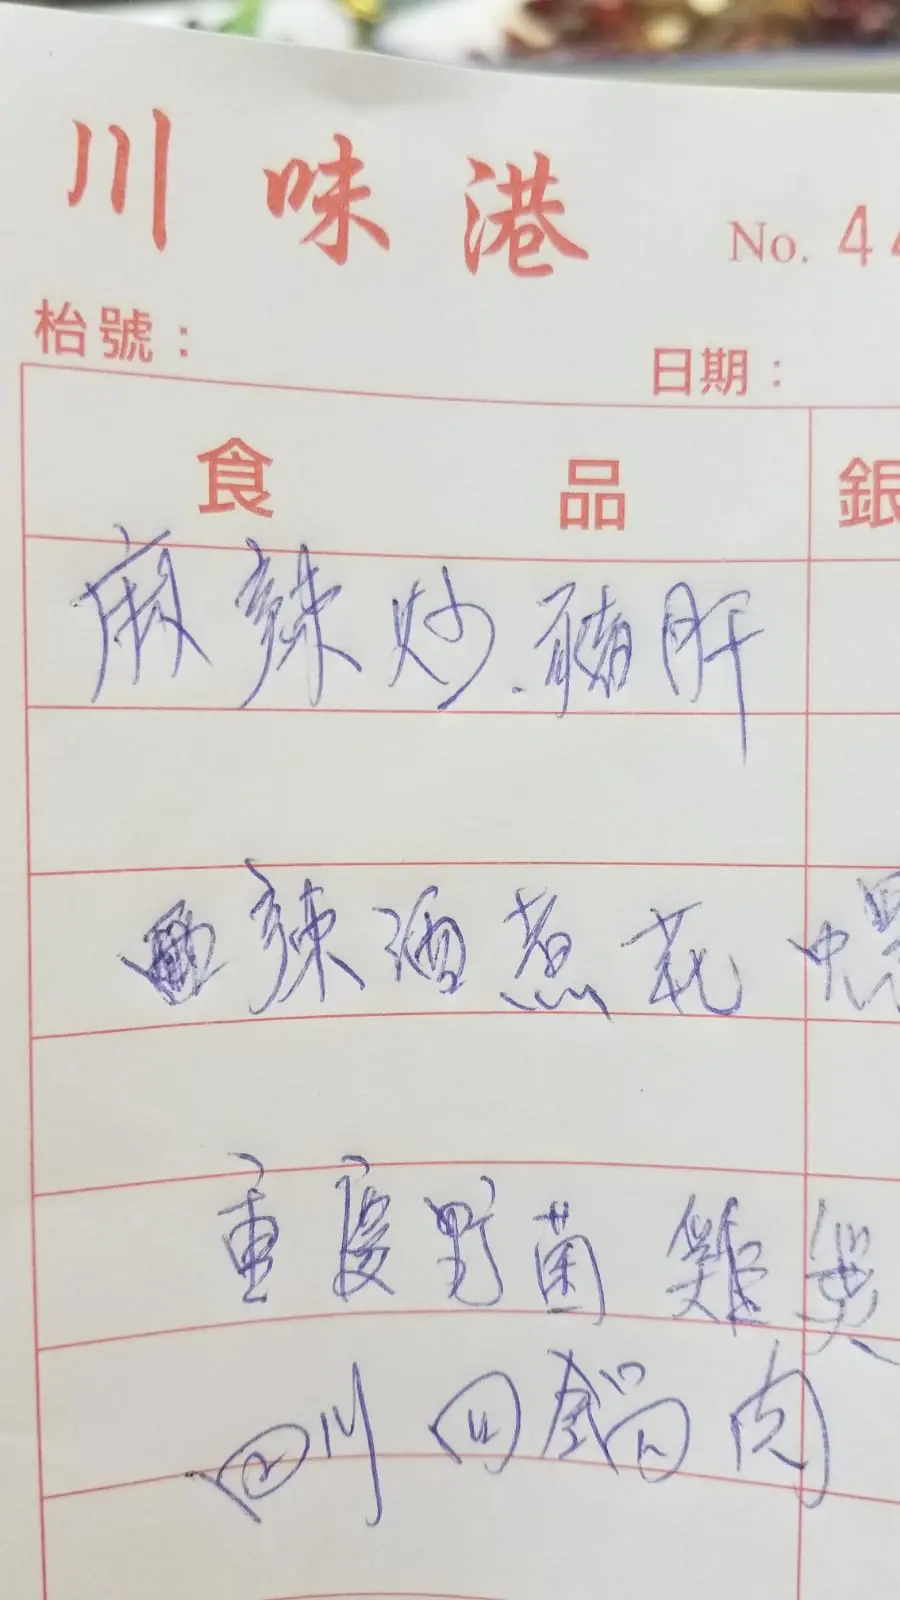 川味港
No. 44
枱號：
日期：
食品
銀
麻辣炒豬肝
辣酒煮花螺
重慶野菌雞煲
四川回鍋肉